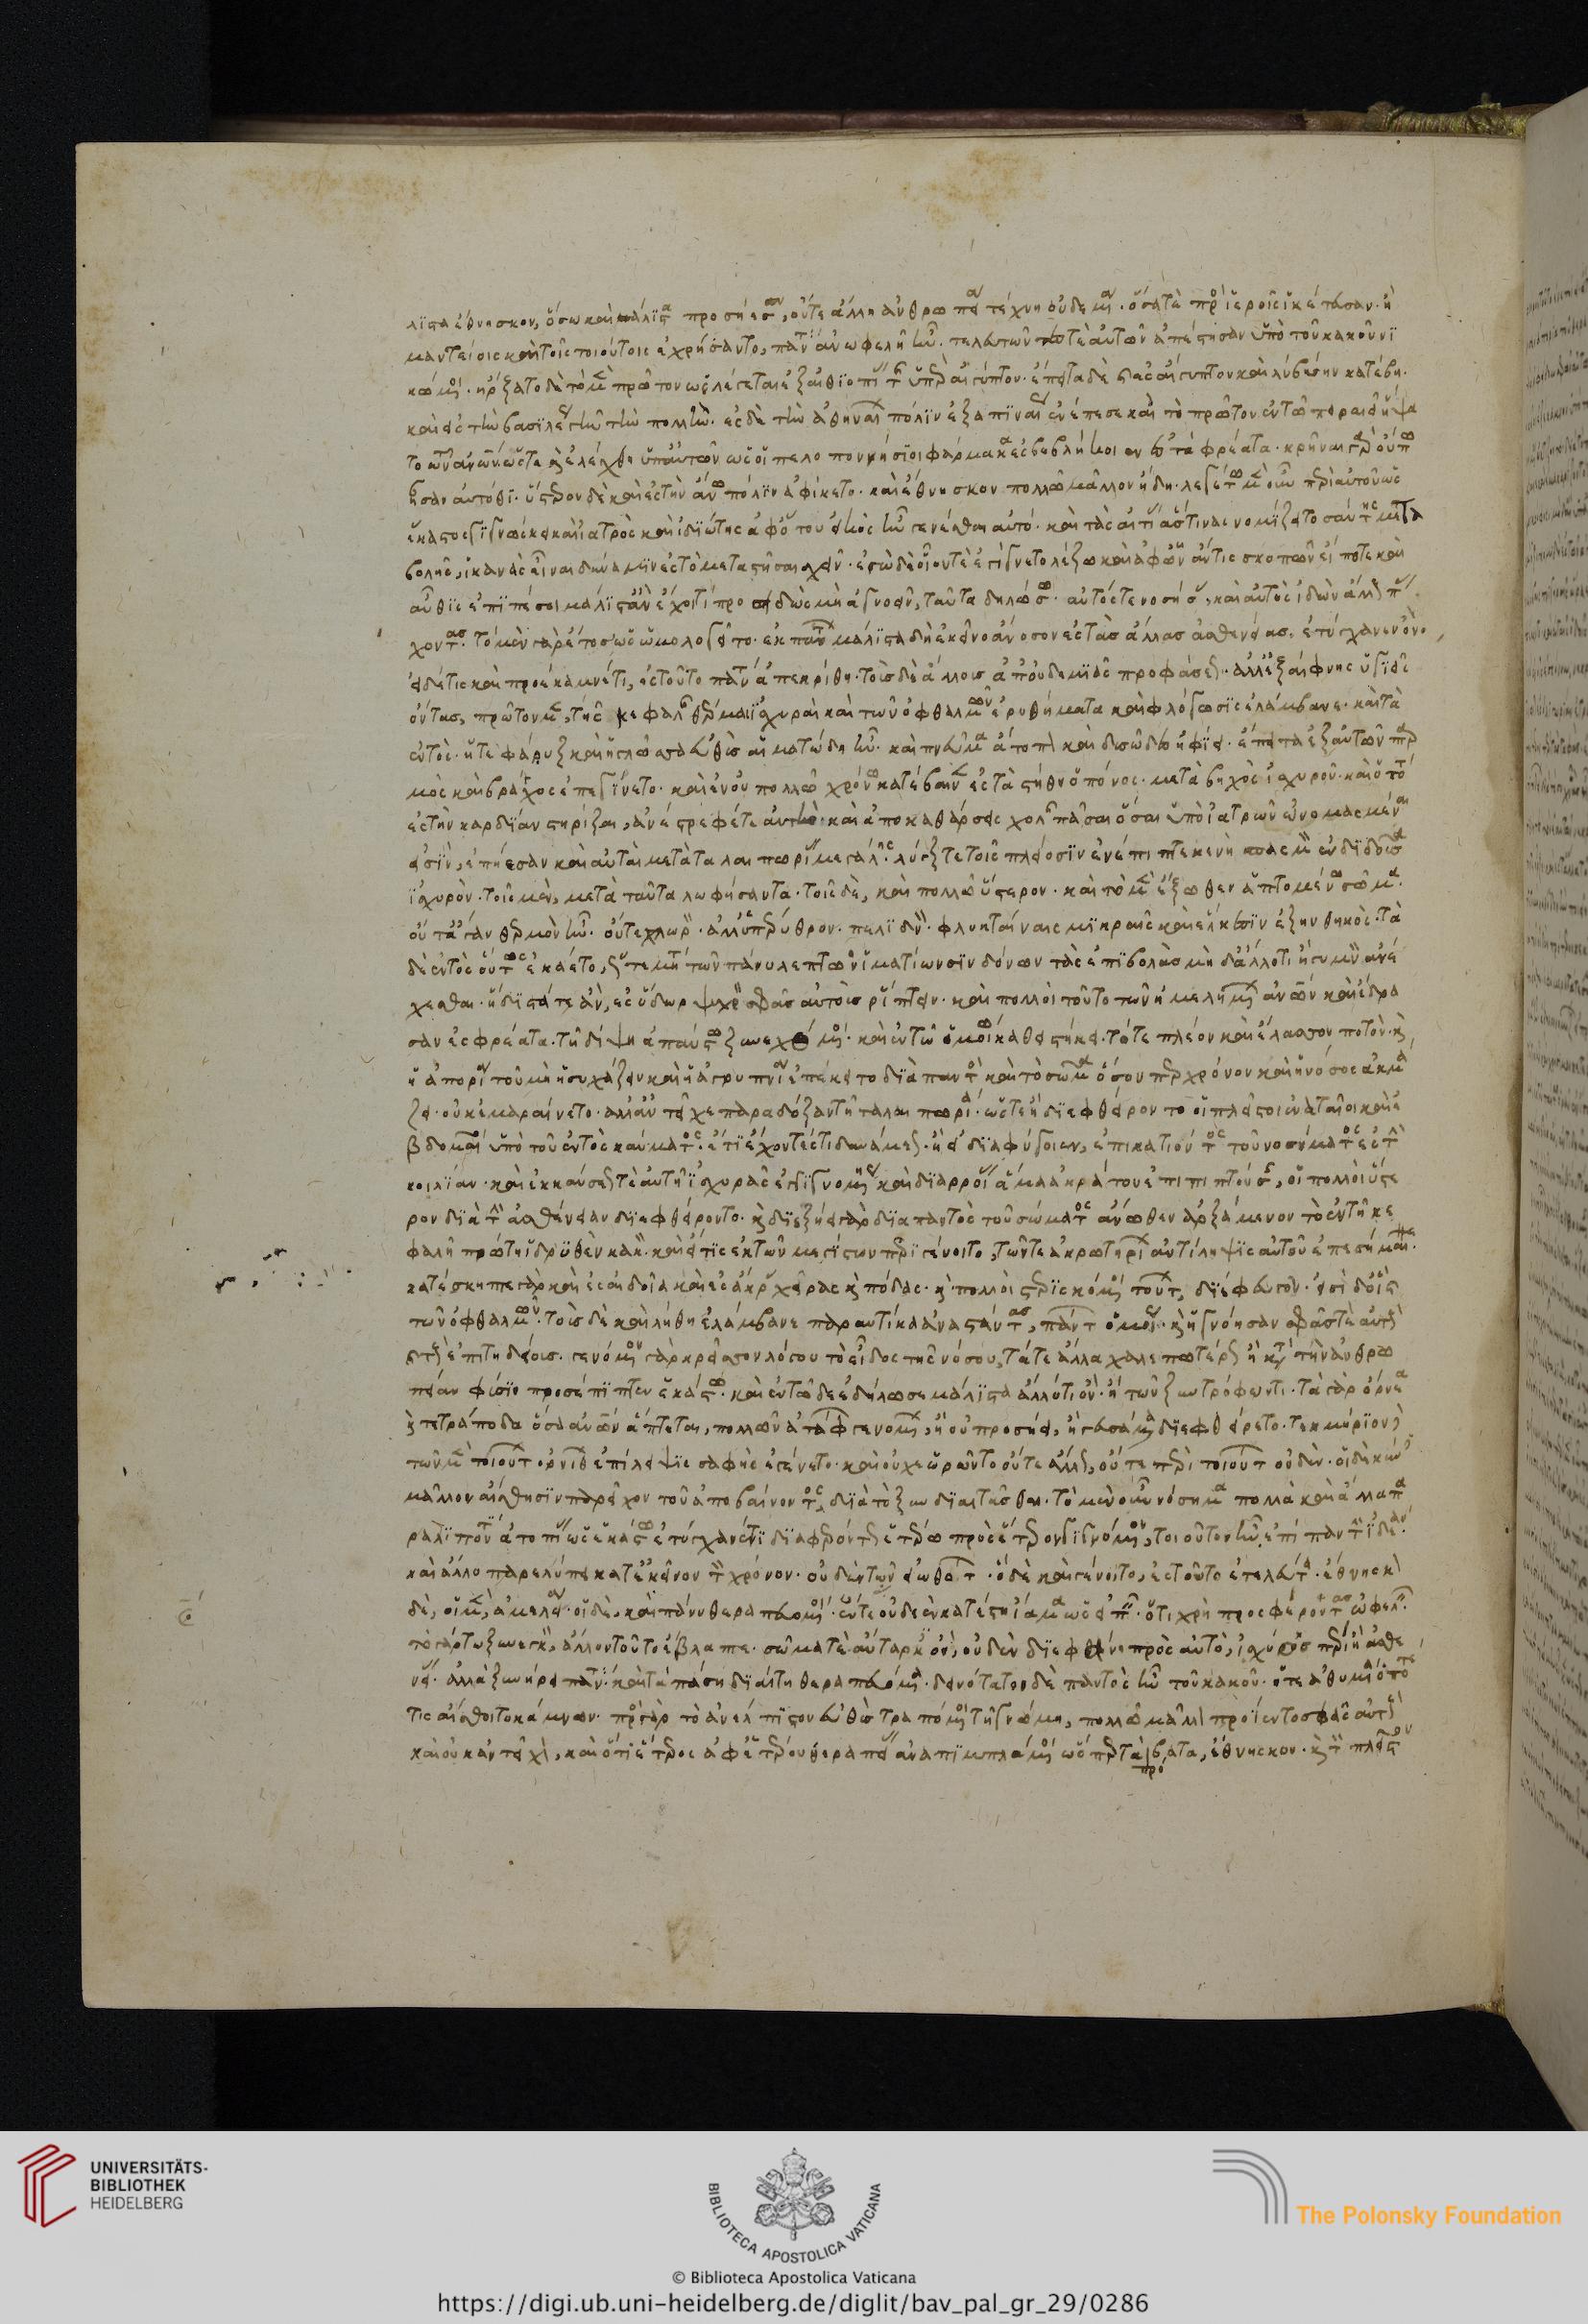 λιστα ἔθνησκον, ὅσω καὶ μάλιστα προσήεσαν, οὔτε ἄλλη ἀνθρωπεία τέχνη οὐδεμία. ὅσα τὲ πρὸς ἱεροῖς ἱκέτευσαν. ἢ
μαντείοις καὶ τοῖς τοιούτοις ἐχρήσαντο, πάντα ἀνωφελῆ ἦν. τελευτῶντες τὲ αὐτῶν ἀπέστησαν ὑπὸ τοῦ κακοῦ νι
κώμενοι. ἤρξατο δὲ τὸ μὲν πρῶτον ὡς λέγεται ἐξ αἰθιοπίας τῆς ὑπὲρ αἰγύπτου. ἔπειτα δὲ καὶ ἐς αἴγυπτον καὶ λιβύην κατέβη.
καὶ ἐς τὴν βασιλέως γῆν τὴν πολλήν. ἐς δὲ τὴν ἀθηναίων πόλιν ἐξαπιναίως ἐνέπεσε καὶ τὸ πρῶτον ἐν τῶ πειραιεῖ ἥψα
το τῶν ἀνθρώπων ὥστε καὶ ἐλέχθη ὑπ' αὐτῶν ὡς οἱ πελοποννήσιοι φάρμακα ἐσβεβλήκοιεν ἐς τὰ φρέατα. κρῆναι γὰρ οὔπω
ἦσαν αὐτόθι. ὕστερον δὲ καὶ ἐς τὴν ἄνω πόλιν ἀφίκετο. καὶ ἔθνησκον πολλῶ μᾶλλον ἤδη. λεγέτω μὲν οὖν περὶ αὐτοῦ ὡς
ἕκαστος γιγνώσκει καὶ ἰατρὸς καὶ ἰδιώτης ἀφ' ὅτου εἰκὸς ἦν γενέσθαι αὐτό. καὶ τὰς αἰτίας ἅστινας νομίζει τοσαύτης μετα
βολῆς, ἱκανὰς εἶναι δύναμιν ἐς τὸ μεταστῆσαι σχεῖν. ἐγὼ δὲ οἷόν τε ἐγίγνετο λέξω καὶ ἀφ' ὧν ἄν τις σκοπῶν εἴ ποτε καὶ
αὖθις ἐπιπέσοι μάλιστ' ἂν ἔχοι τι προειδὼς μὴ ἀγνοεῖν, ταῦτα δηλώσω. αὐτός τε νοσήσας, καὶ αὐτὸς ἰδὼν ἄλλους πάσ
χοντας. τὸ μὲν γὰρ ἔτος ὡς ὡμολογεῖτο. ἐκ πάντων μάλιστα δὴ ἐκεῖνο ἄνοσον ἐς τὰς ἄλλας ἀσθενείας. ἐτύγχανεν ὄν.
εἰ δέ τις καὶ προέκαμνέ τι, ἐς τοῦτο πάντα ἀπεκρίθη. τοὺς δὲ ἄλλους ἀπ' οὐδεμιᾶς προφάσεως. ἀλλ' ἐξαίφνης ὑγιεῖς
ὄντας, πρῶτον μὲν, τῆς κεφαλῆς θέρμαι ἰσχυραὶ καὶ τῶν ὀφθαλμῶν ἐρυθήματα καὶ φλόγωσις ἐλάμβανε. καὶ τὰ
ἐντὸς. ἥ τε φάρυξ καὶ ἡ γλῶσσα εὐθὺς αἱματώδη ἦν. καὶ πνεῦμα ἄτοπον καὶ δυσῶδες ἠφίει. ἔπειτα ἐξ αὐτῶν πταρ
μὸς καὶ βράγχος ἐπεγίγνετο. καὶ ἐν οὐ πολλῶ χρόνω κατέβαινεν ἐς τὰ στήθη ὁ πόνος. μετὰ βηχὸς ἰσχυροῦ. καὶ ὁπότε
ἐς τὴν καρδίαν στηρίξαι, ἀνέστρεφέ τε αὐτὴν καὶ ἀποκαθάρσεις χολῆς πᾶσαι ὅσαι ὑπὸ ἰατρῶν ὠνομασμέναι
εἰσὶν, ἐπήεσαν καὶ αὗται μετὰ ταλαιπωρίας μεγάλης. λύγξ τε τοῖς πλείοσιν ἐνέπιπτε κενὴ σπασμὸν ἐνδιδοῦσα
ἰσχυρὸν. τοῖς μὲν, μετὰ ταῦτα λωφήσαντα. τοῖς δὲ, καὶ πολλῶ ὕστερον. καὶ τὸ μὲν ἔξωθεν ἁπτομένω σῶμα.
οὔτ' ἄγαν θερμὸν ἦν. οὔτε χλωρὸν. ἀλλ' ὑπέρυθρον. πελιδνὸν. φλυκταίναις μικραῖς καὶ ἕλκεσιν ἐξηνθηκὸς. τὰ
δὲ ἐντὸς οὕτως ἐκάετο, ὥστε μήτε τῶν πάνυ λεπτῶν ἱματίων σινδόνων τὰς ἐπιβολὰς μὴ δ' ἄλλό τι ἢ γυμνὸν ἀνέ
χεσθαι. ἥδιστά τε ἂν, ἐς ὕδωρ ψυχρὸν σφᾶς αὐτοὺς ῥίπτειν. καὶ πολλοὶ τοῦτο τῶν ἠμελημένων ἀνθρώπων καὶ ἔδρα
σαν ἐς φρέατα. τῆ δίψη ἀπαύστω ξυνεχόμενοι. καὶ ἐν τῶ ὁμοίω καθεστήκει. τό τε πλέον καὶ ἔλασσον ποτόν. καὶ
ἡ ἀπορία τοῦ μὴ ἡσυχάζειν καὶ ἡ ἀγρυπνία ἐπέκειτο διὰ παντὸς καὶ τὸ σῶμα ὅσον περ χρόνον καὶ ἡ νόσος ἀκμά
ζει. οὐκ ἐμαραίνετο. ἀλλ' ἀντεῖχε παρὰ δόξαν τῆ ταλαιπωρία. ὥστε ἢ διεφθείροντο οἱ πλεῖστοι ἐναταῖοι καὶ ἑ
βδομαῖοι ὑπὸ τοῦ ἐντὸς καύματος. ἔτι ἔχοντές τι δυνάμεως. ἢ εἰ διαφύγοιεν, ἐπικατιόντος τοῦ νοσήματος ἐς τὴν
κοιλίαν. καὶ ἑλκώσεώς τε αὐτῆ ἰσχυρᾶς ἐγγιγνομένης καὶ διαρροίας ἅμα ἀκράτου ἐπιπιπτούσης, οἱ πολλοὶ ὕστε
ρον διὰ τὴν ἀσθένειαν διεφθείροντο. καὶ διεξήει γὰρ διὰ παντὸς τοῦ σώματος ἄνωθεν ἀρξάμενον τὸ ἐν τῆ κε
φαλῆ πρῶτον ἱδρυθὲν κακὸν. καὶ εἴ τις ἐκ τῶν μεγίστων περιγένοιτο, τῶν τε ἀκρωτηρίων ἀντίληψις αὐτοῦ ἐπεσήμαινε.
κατέσκηπτε γὰρ καὶ ἐς αἰδοῖα καὶ ἐς ἄκρας χεῖρας καὶ πόδας. καὶ πολλοὶ στερισκόμενοι τούτων, διέφευγον. εἰσὶ δ' οἳ
τῶν ὀφθαλμῶν. τοὺς δὲ καὶ λήθη ἐλάμβανε παραυτίκα ἀναστάντας, πάντων ὁμοίως. καὶ ἠγνόησαν σφᾶς τὲ αὐτοὺς
καὶ τοὺς ἐπιτηδείους. γενόμενον γὰρ κρεῖσσον λόγου τὸ εἶδος τῆς νόσου, τά τε ἄλλα χαλεπωτέρως ἢ κατὰ τὴν ἀνθρω
πείαν φύσιν προσέπιπτεν ἑκάστω. καὶ ἐν τῶδε ἐδήλωσε μάλιστα ἄλλό τι ὂν. ἢ τῶν ξυντρόφων τι. τὰ γὰρ ὄρνεα
καὶ τετράποδα ὅσα ἀνθρώπων ἅπτεται, πολλῶν ἀτάφων γενομένων, ἢ οὐ προσήει, ἢ γευσάμενα διεφθείρετο. τεκμήριον δὲ
τῶν μὲν τοιούτων ὀρνίθων ἐπίλειψις σαφὴς ἐγένετο. καὶ οὐχ ἑωρῶντο οὔτε ἄλλως, οὔτε περὶ τοιοῦτον οὐδὲν. οἱ δὲ κύνες
μᾶλλον αἴσθησιν παρεῖχον τοῦ ἀποβαίνοντος, διὰ τὸ ξυνδιαιτᾶσθαι. τὸ μὲν οὖν νόσημα πολλὰ καὶ ἄλλα πα
ραλιπόντι ἀτοπίας ὡς ἑκάστω ἐτύγχανέν τι διαφερόντως ἑτέρω πρὸς ἕτερον γιγνόμενον, τοιοῦτον ἦν ἐπὶ πᾶν τὴν ἰδέαν.
καὶ ἄλλο παρελύπει κατ' ἐκεῖνον τὸν χρόνον. οὐδὲν τῶν εἰωθότων. ὃ δὲ καὶ γένοιτο, ἐς τοῦτο ἐτελεύτα. ἔθνησκον
δὲ, οἱ μὲν, ἀμελεία. οἱ δὲ, καὶ πάνυ θεραπευόμενοι. ἕν τε οὐδὲν κατέστη ἴαμα ὡς εἰπεῖν. ὅτι χρὴ προσφέροντας ὠφελεῖν.
τὸ γάρ τω ξυνεγκὸν, ἄλλον τοῦτο ἔβλαπτε. σῶμά τε αὔταρκες ὂν, οὐδὲν διεφάνη πρὸς αὐτὸ, ἰσχύος πέρι ἢ ἀσθε
νείας. ἀλλὰ ξυνήρει πάντα. καὶ τὰ πάση διαίτη θεραπευόμενα. δεινότατον δὲ παντὸς ἦν τοῦ κακοῦ. ἥ τε ἀθυμία ὁπότε
τις αἴσθοιτο κάμνων. πρὸς γὰρ τὸ ἀνέλπιστον εὐθὺς τραπόμενοι τῆ γνώμη, πολλῶ μᾶλλον προΐεντο σφᾶς αὐτοὺς
καὶ οὐκ ἀντεῖχον, καὶ ὅτι ἕτερος ἀφ' ἑτέρου θεραπείας ἀναπιμπλάμενοι ὥσπερ τὰ πρόβατα, ἔθνησκον. καὶ τὸν πλεῖστον
UNIVERSITÄTS-
BIBLIOTHEK
HEIDELBERG
BIBLIOTECA APOSTOLICA VATICANA
The Polonsky Foundation
© Biblioteca Apostolica Vaticana
https://digi.ub.uni-heidelberg.de/diglit/bav_pal_gr_29/0286